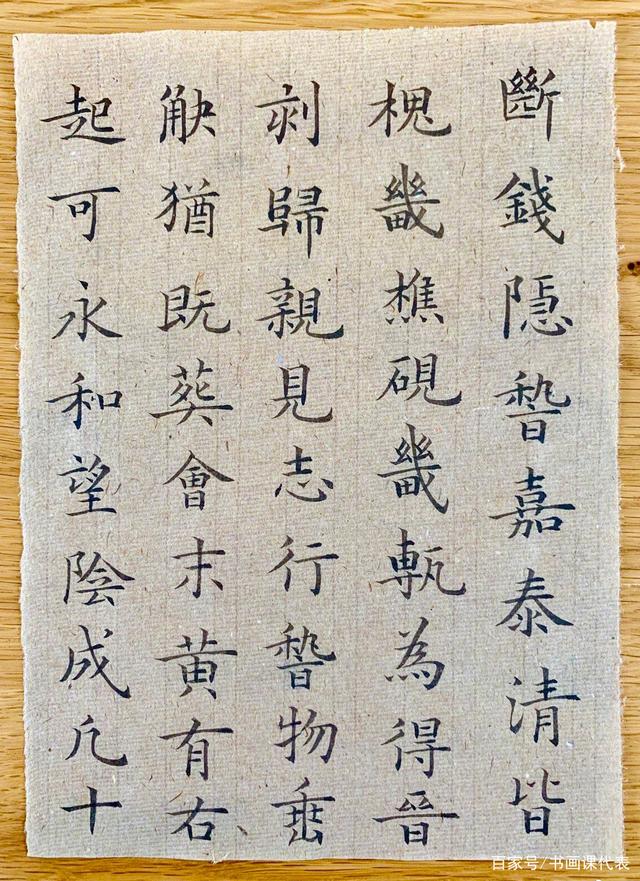 斷錢隠嘉泰清皆
槐畿樵硯畿甎為得晉
歸親見志行物垂
觖猶既葬會末黃有右、
起可永和望陰成凡十
百家号/书画课代表